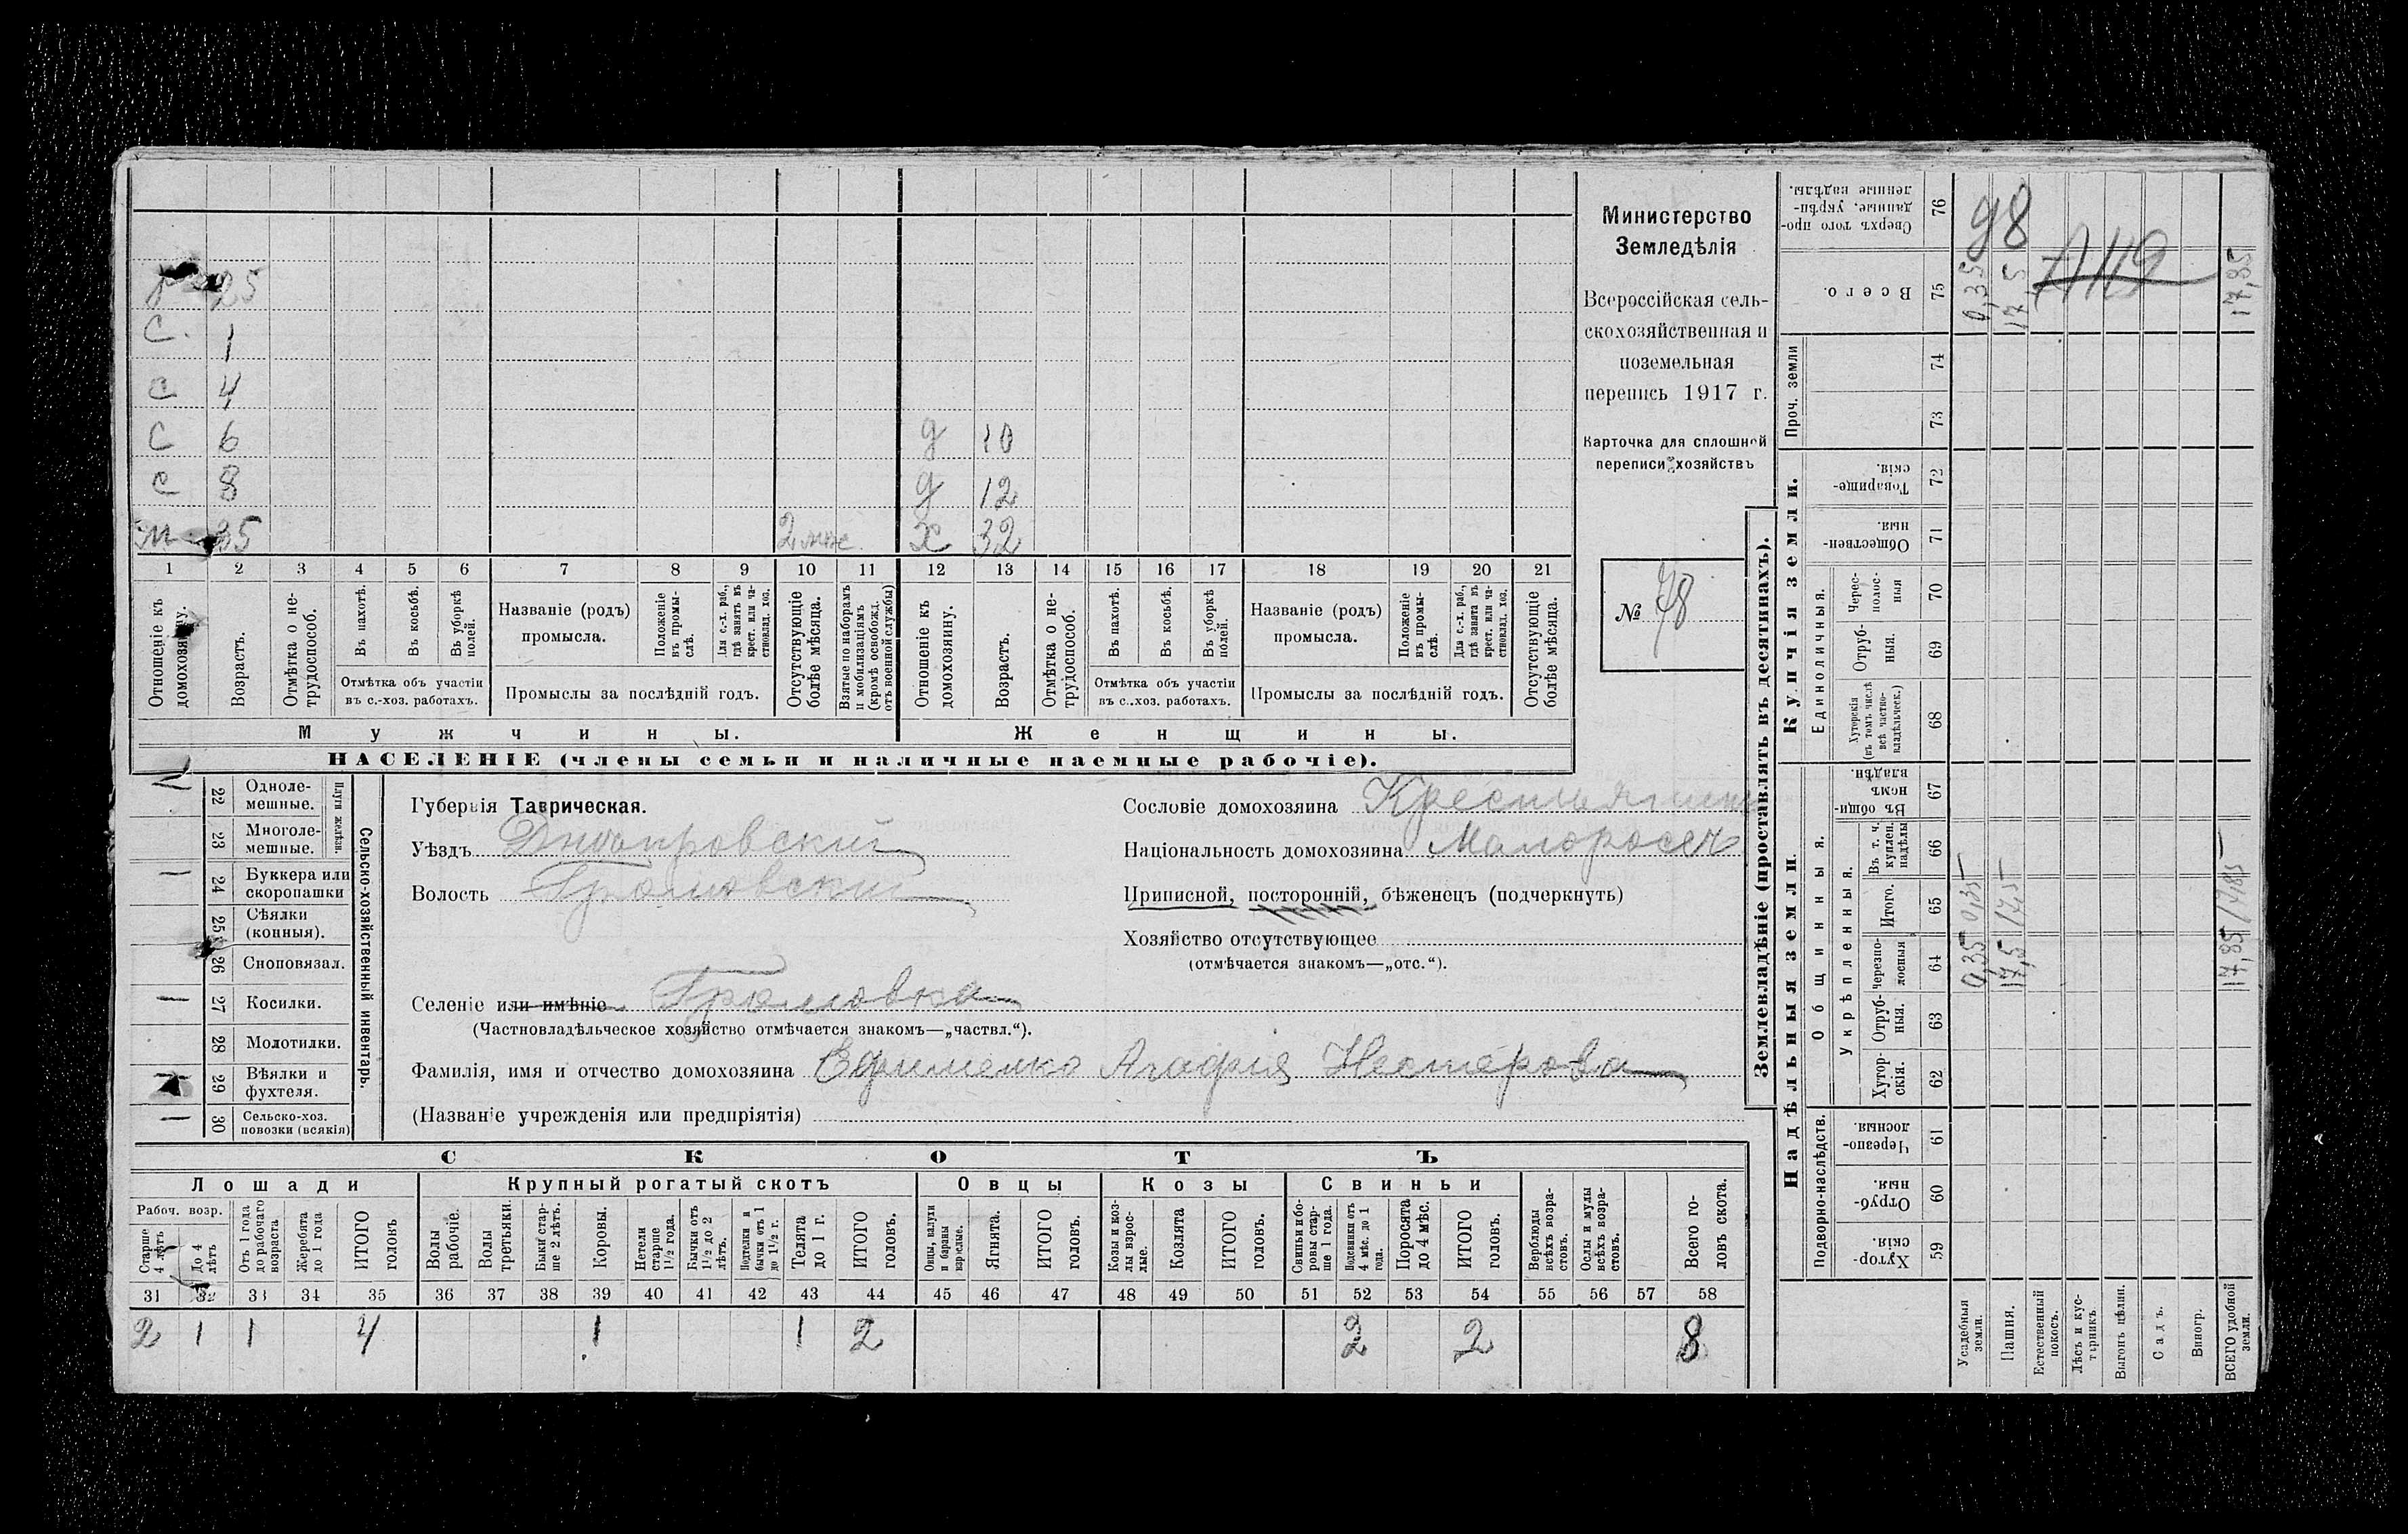 25
С. 1
с 4
С 6 д 10
с 8 д 12
м 35 2 мес. х 32
1 2 3 4 5 6 7 8 9 10 11 12 13 14 15 16 17 18 19 20 21
Отношеніе къ домохозяину.
Возрастъ.
Отмѣтка о не-трудоспособ.
Въ пахотѣ.
Въ косьбѣ.
Въ уборкѣ полей.
Отмѣтка объ участіи
въ с.-хоз. работахъ.
Названіе (родъ)
промысла.
Положеніе въ промы-слѣ.
Для с.-х. раб., гдѣ занятъ въ крест. или ча-стновлад. хоз.
Промыслы за послѣдній годъ.
Отсутствующіе болѣе мѣсяца.
Взятые по наборамъ и мобилизаціямъ (кромѣ освобожд. отъ военной службы)
Отношеніе къ домохозяину.
Возрастъ.
Отмѣтка о не-трудоспособ.
Въ пахотѣ.
Въ косьбѣ.
Въ уборкѣ полей.
Отмѣтка объ участіи
въ с.-хоз. работахъ.
Названіе (родъ)
промысла.
Положеніе въ промы-слѣ.
Для с.-х. раб., гдѣ занята въ крест. или ча-стновлад. хоз.
Промыслы за послѣдній годъ.
Отсутствующіе болѣе мѣсяца.
Мужчины. Женщины.
НАСЕЛЕНІЕ (члены семьи и наличные наемные рабочіе).
Министерство
Земледѣлія
Всероссійская сель-
скохозяйственная и
поземельная
перепись 1917 г.
Карточка для сплошной
переписи хозяйствъ
№ 78
22 Одноле-мешные.
23 Многоле-мешные.
Плуги желѣзн.
24 Буккера или скоропашки
25 Сѣялки (конныя).
26 Сноповязал.
27 Косилки.
28 Молотилки.
29 Вѣялки и фухтеля.
30 Сельско-хоз. повозки (всякія)
Сельско-хозяйственный инвентарь.
Губернія Таврическая.
Уѣздъ Днѣпровский
Волость Громовский
Селеніе или имѣніе Громовка
(Частновладѣльческое хозяйство отмѣчается знакомъ—„частвл.“).
Фамилія, имя и отчество домохозяина Ефименко Агафия Нестерова
(Названіе учрежденія или предпріятія)
Сословіе домохозяина Крестьянин
Національность домохозяина Малоросс
Приписной, посторонній, бѣженецъ (подчеркнуть)
Хозяйство отсутствующее
(отмѣчается знакомъ—„отс.“).
СКОТЪ
Лошади Крупный рогатый скотъ Овцы Козы Свиньи
Рабоч. возр.
Старше 4 лѣтъ
До 4 лѣтъ
Отъ 1 года до рабочаго возраста
Жеребята до 1 года
ИТОГО головъ
Волы рабочіе.
Волы третьяки.
Быки стар-ше 2 лѣтъ.
Коровы.
Нетели старше 1½ года.
Бычки отъ 1½ до 2 лѣтъ.
Подтелки и бычки отъ 1 до 1½ г.
Телята до 1 г.
ИТОГО головъ.
Овцы, валухи и бараны взрослые.
Ягнята.
ИТОГО головъ.
Козы и коз-лы взрос-лые.
Козлята
ИТОГО головъ.
Свиньи и бо-ровы стар-ше 1 года.
Подсвинки отъ 4 мѣс. до 1 года.
Поросята до 4 мѣс.
ИТОГО головъ.
Верблюды всѣхъ возра-стовъ.
Ослы и мулы всѣхъ возра-стовъ.
Всего го-ловъ скота.
31 32 33 34 35 36 37 38 39 40 41 42 43 44 45 46 47 48 49 50 51 52 53 54 55 56 57 58
2 1 1 4 1 1 2 2 2 8
Землевладѣніе (проставлять въ десятинахъ).
Надѣльныя земли.
Купчія земли.
Подворно-наслѣдств.
Общинныя.
Укрѣпленныя.
Единоличныя.
Проч. земли
Хутор-скія. 59
Отруб-ныя. 60
Черезпо-лосныя. 61
Хутор-скія. 62
Отруб-ныя. 63
черезпо-лосныя 64
Итого. 65
Въ т. ч. куплен. надѣлы 66
Въ общи-номъ владѣн. 67
Хуторскія (въ томъ числѣ всѣ частно-владѣльческ.) 68
Отруб-ныя. 69
Черес-полос-ныя 70
Обществен-ныя. 71
Товарище-скія. 72
73
74
Всего. 75
Сверхъ того про-данные, укрѣп-ленные надѣлы. 76
Усадебныя земли. 0,35 0,35 0,35
Пашня. 17,5 17,5 17,5
Естественный покосъ.
Лѣсъ и кус-тарникъ.
Выгонъ цѣлин.
Садъ.
Виногр.
ВСЕГО удобной земли. 17,85 17,85 17,85
98